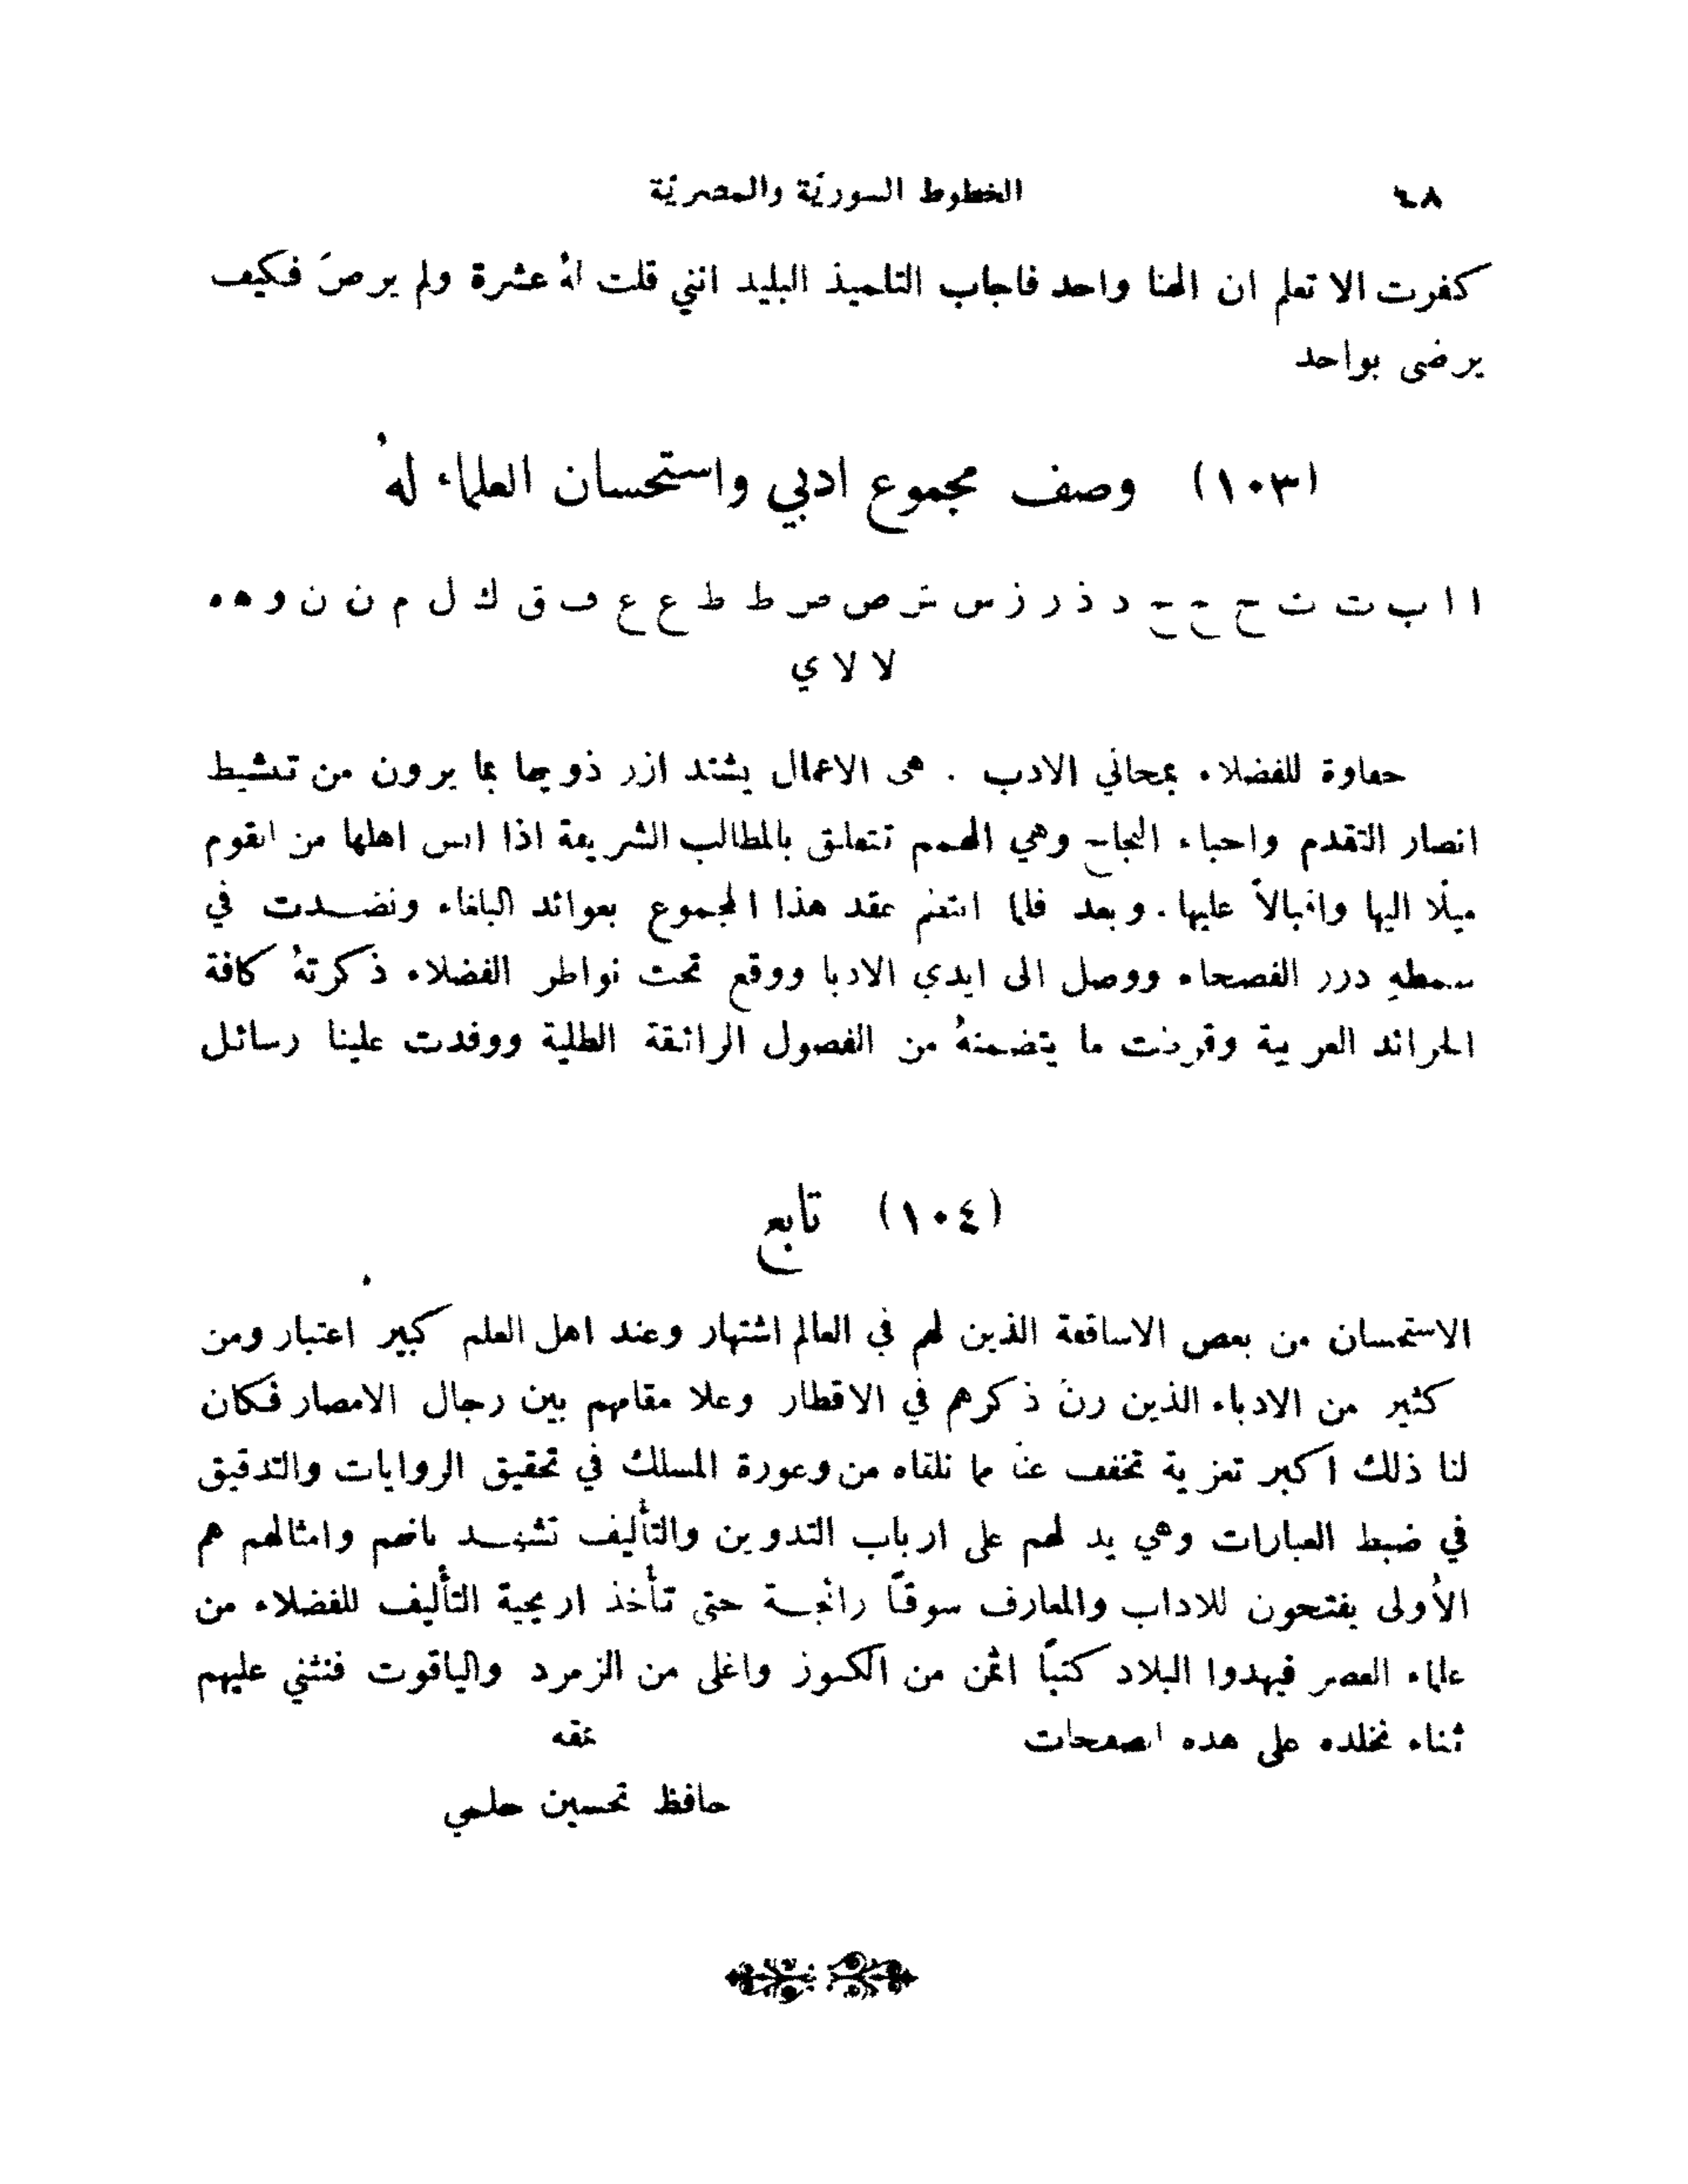 ٤٨ الخطوط السوريّة والمصريّة
كفرت الا تعلم ان الهنا واحد فاجاب التلميذ البليد انني قلت لهُ عشرة ولم يرضَ فكيف
يرضى بواحد
(١٠٣) وصف مجموع ادبي واستحسان العلماء لهُ
ا ا ب ت ث ح ج خ د ذ ر ز س ش ص ض ط ظ ع غ ف ق ك ل م ن ن و ه ه
لا لا ي
حفاوة للفضلاء بمجاني الادب . هي الاعمال يشتد ازر ذويها بما يرون من تنشيط
انصار التقدم واحباء النجاح وهي الهمم تتعلق بالمطالب الشريفة اذا انس اهلها من القوم
ميلًا اليها واقبالاً عليها . وبعد فلما انتظم عقد هذا المجموع بعوائد البلغاء ونضدت في
سمطهِ درر الفصحاء ووصل الى ايدي الادبا ووقع تحت نواظر الفضلاء ذكرتهُ كافة
الجرائد العربية وقرضت ما يتضمنهُ من الفصول الرائقة الطلية ووفدت علينا رسائل
(١٠٤) تابع
الاستحسان من بعض الاساقفة الذين لهم في العالم اشتهار وعند اهل العلم كبير اعتبار ومن
كثير من الادباء الذين رنَّ ذكرهم في الاقطار وعلا مقامهم بين رجال الامصار فكان
لنا ذلك اكبر تعزية تخفف عنا مما نلقاه من وعورة المسلك في تحقيق الروايات والتدقيق
في ضبط العبارات وهي يد لهم على ارباب التدوين والتأليف تشهد بانهم وامثالهم هم
الأولى يفتحون للاداب والمعارف سوقاً رائجة حتى تأخذ اريحية التأليف للفضلاء من
علماء العصر فيهدوا البلاد كتباً اثمن من الكنوز واغلى من الزمرد والياقوت فنثني عليهم
ثناء نخلده على هذه الصفحات نمقه
حافظ تحسين حلمي